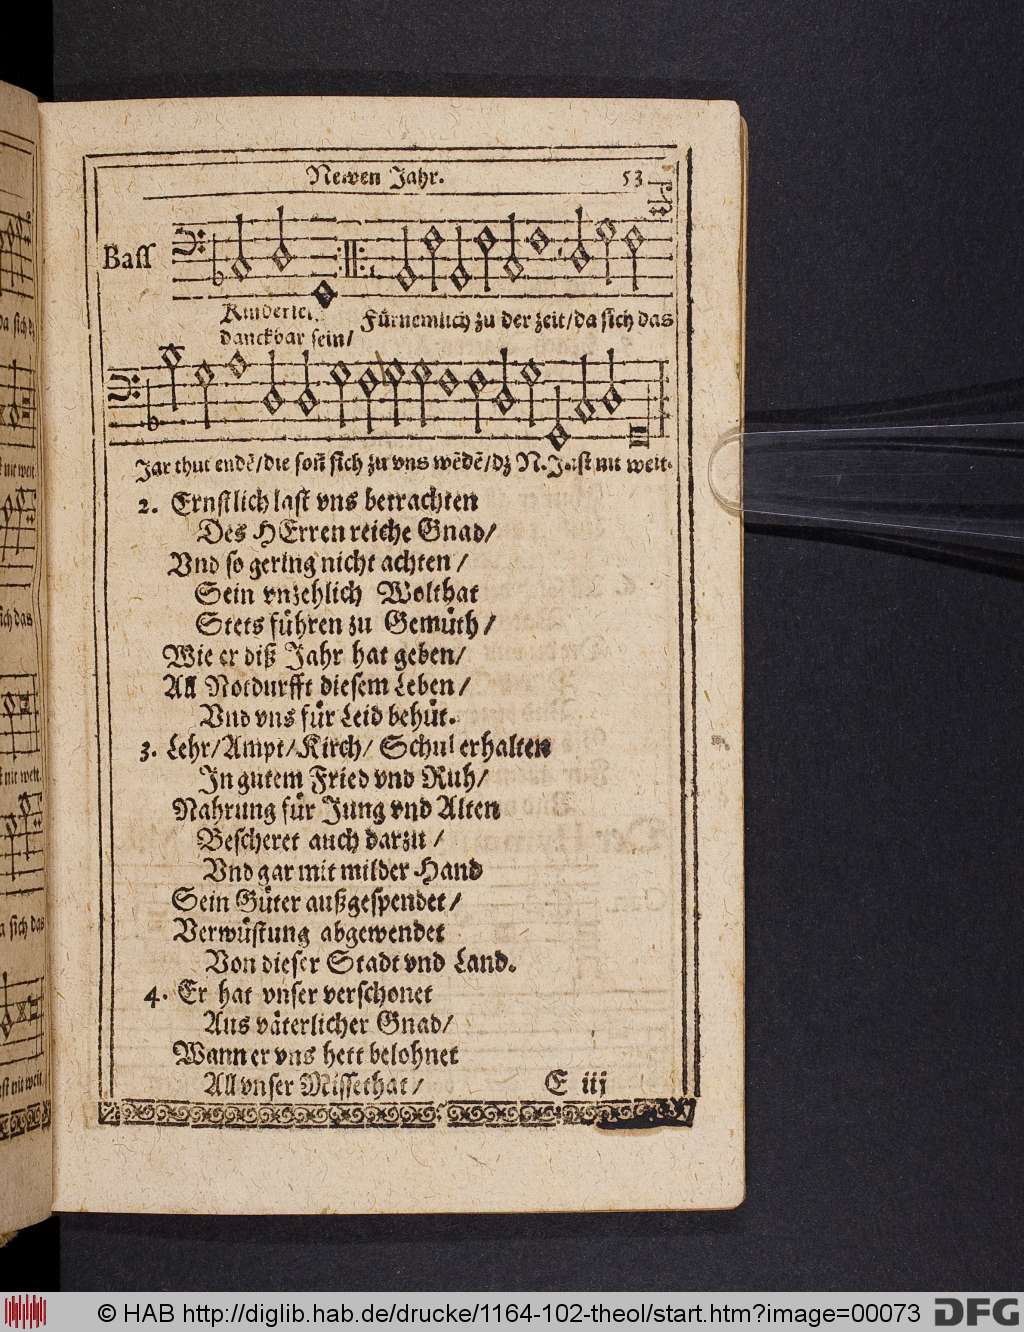 Newen Jahr. 53
Bass
Kinderlei
danckbar sein/
Fürnemlich zu der zeit/da sich das
Jar thut endẽ/die soñ sich zu vns wẽdẽ/dz N.Ja ist nit weit.
2. Ernstlich last vns betrachten
Des HErren reiche Gnad/
Vnd so gering nicht achten/
Sein vnzehlich Wolthat
Stets führen zu Gemüth/
Wie er diß Jahr hat geben/
All Notdurfft diesem Leben/
Vnd vns für Leid behüt.
3. Lehr/Ampt/Kirch/ Schul erhalten
In gutem Fried vnd Ruh/
Nahrung für Jung vnd Alten
Bescheret auch darzu/
Vnd gar mit milder Hand
Sein Güter außgespendet/
Verwüstung abgewendet
Von dieser Stadt vnd Land.
4. Er hat vnser verschonet
Aus väterlicher Gnad/
Wann er vns hett belohnet
All vnser Missethat/ E iij
da sich das
ist nit weit.
© HAB http://diglib.hab.de/drucke/1164-102-theol/start.htm?image=00073 DFG